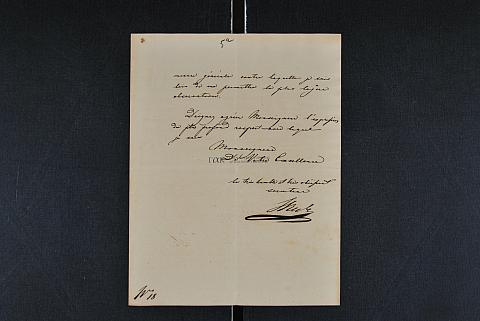 5ª
contre laquelle je
me permettre la plus légère
observation.
Daignez agréer Monseigneur l'expression
du plus profond respect avec lequel
je suis
Monseigneur
De Votre Excellence
le très humble et très obéissant
serviteur
Nº 18